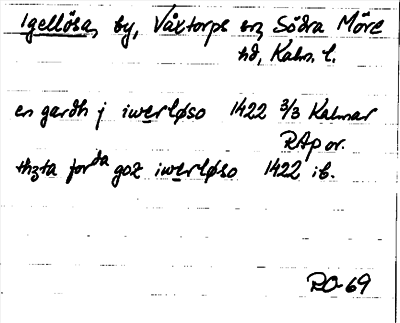 Igellösa, by, Växtorps sn, Södra Möre
hd, Kalm. l.
en gardh j iwerløso 1422 3/3 Kalmar
RAp or.
thzta forda goz iwerløso 1422 ib.
RO-69